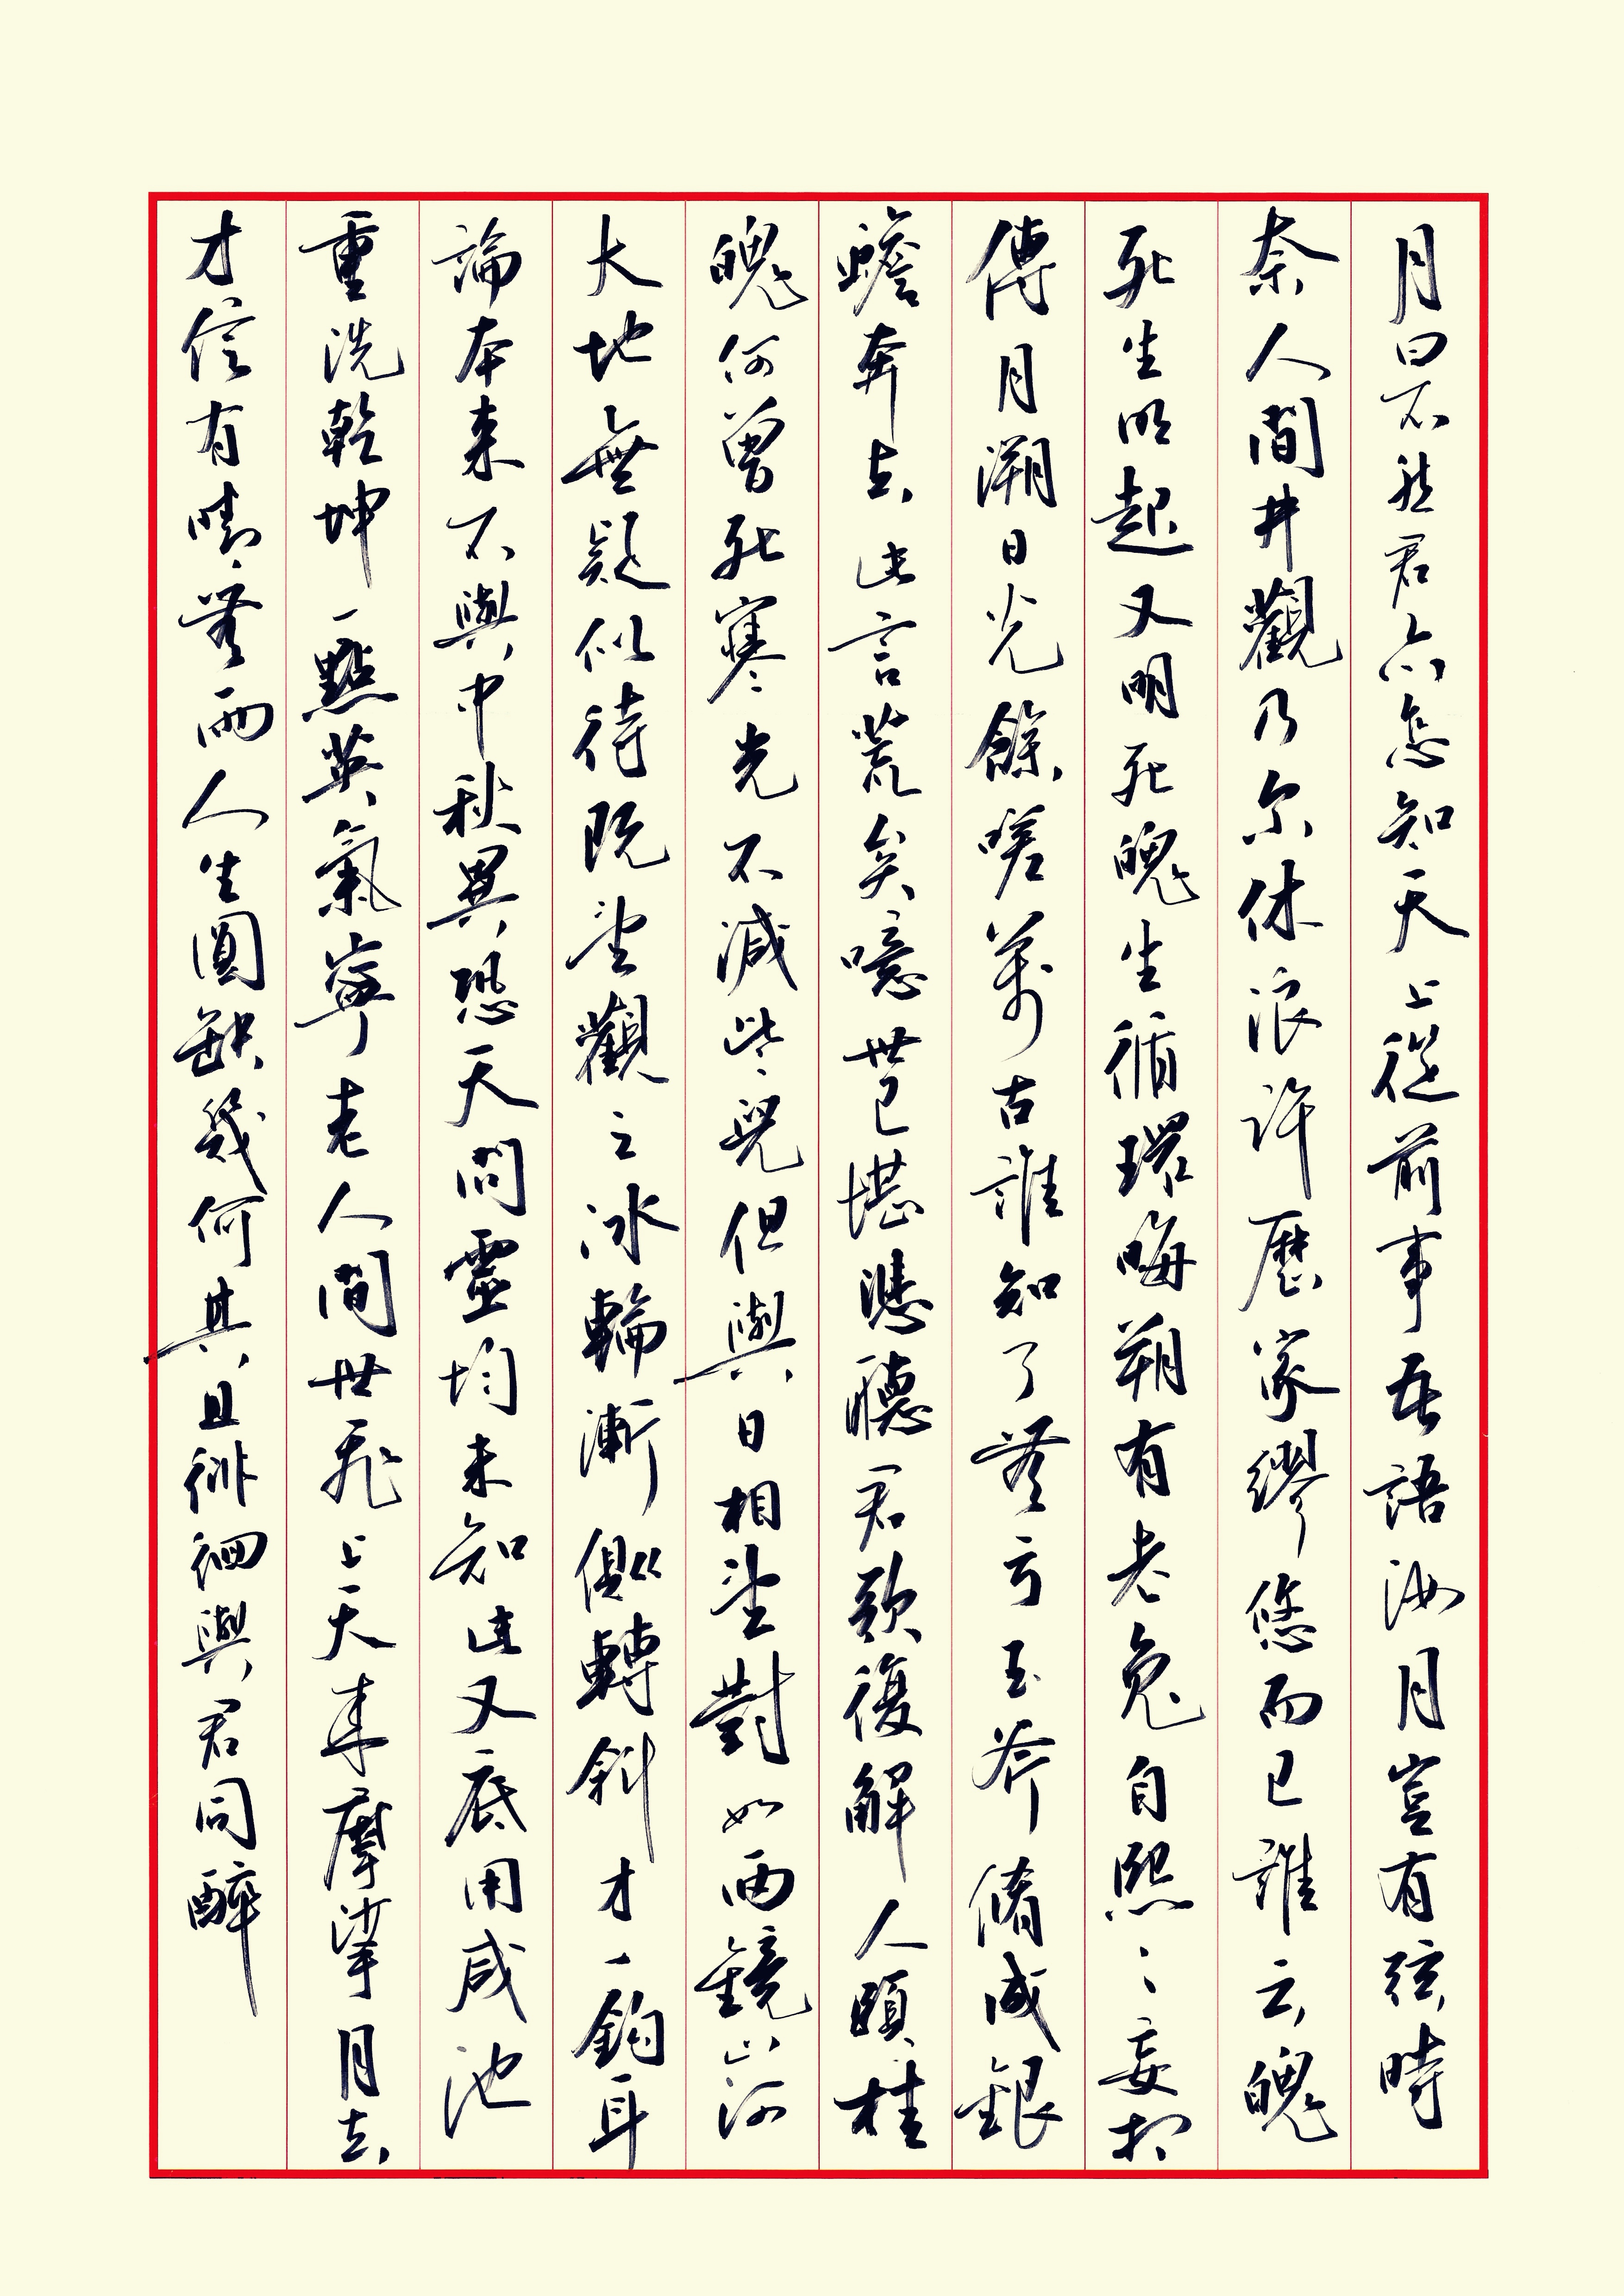 月曰不然君亦怎知天上從前事吾語汝月豈有弦時
奈人間井觀乃尔休浪許曆家繆悠而已誰云魄
死生明起又明死魄生循環晦朔有老兔自熙熙妄相
傳月溯日光餘嗟萬古誰知了無亏玉斧脩成銀
蟾奔去此言荒矣噫世已堪悲聽君歌復解人頤桂
魄何曾死寒光不減些兒但與日相望對如兩鏡山河
大地無疑似待既望觀之冰輪漸轉斜才一鈎耳
論本来不與中秋異恐天問靈均未知此又底用咸池
重洗乾坤一點英氣寧老人間世飛上天来摩挲月去
才信有晴無雨人生圓缺幾何其且徘徊與君同醉